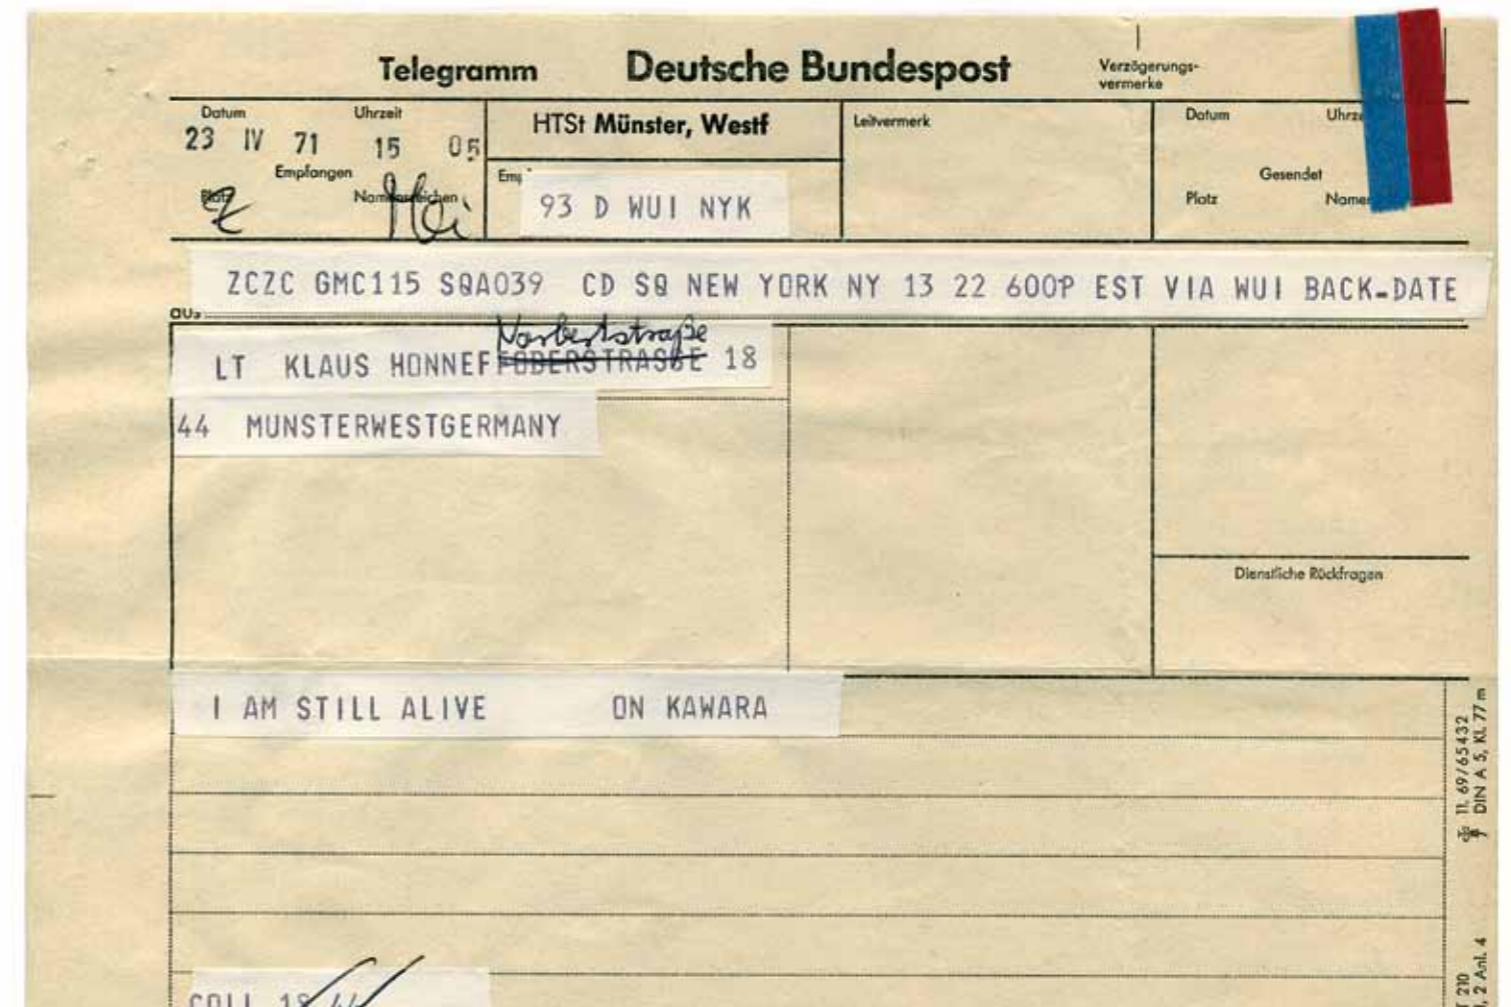 Telegramm Deutsche Bundespost Verzögerungs-
vermerke
Datum Uhrzeit
23 IV 71 15 05
Empfangen
Platz Namenszeichen
HTSt Münster, Westf
93 D WUI NYK
Leitvermerk
Datum
Gesendet
Platz
ZCZC GMC115 SQA039 CD SQ NEW YORK NY 13 22 600P EST VIA WUI BACK-DATE
aus
Norbertstraße
LT KLAUS HONNEF FODERSTRASSE 18
44 MUNSTERWESTGERMANY
Dienstliche Rückfragen
I AM STILL ALIVE ON KAWARA
11. 69/65432
DIN A 5, Kl. 77 m
COLL 18 44
210
, 2 Anl. 4